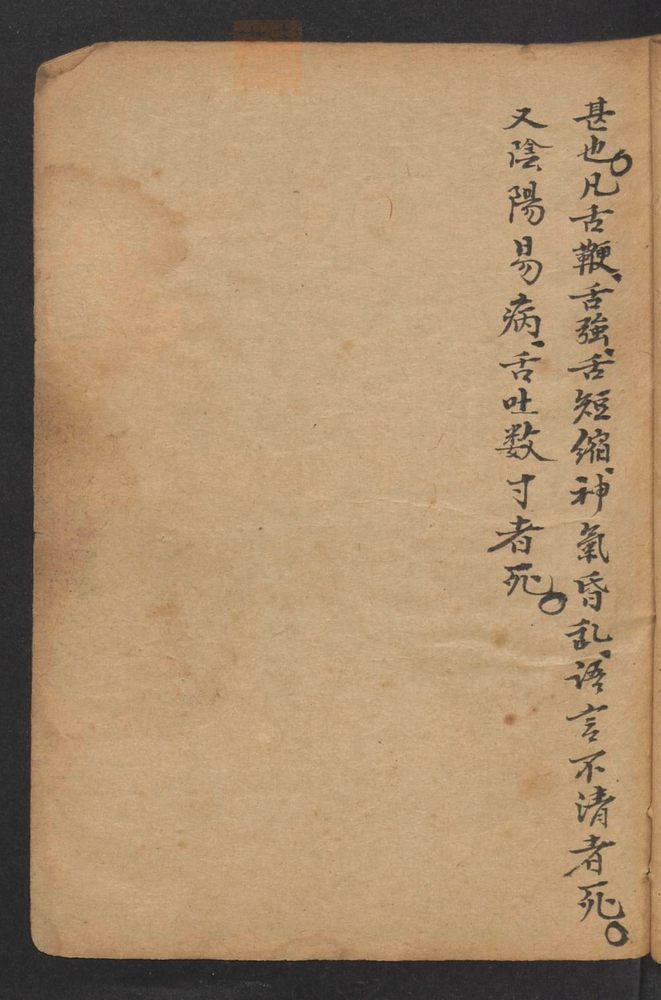 甚也。凡舌鞭、舌強、舌短縮、神氣昏乱、語言不清者死。
又陰陽易病、舌吐数寸者死。